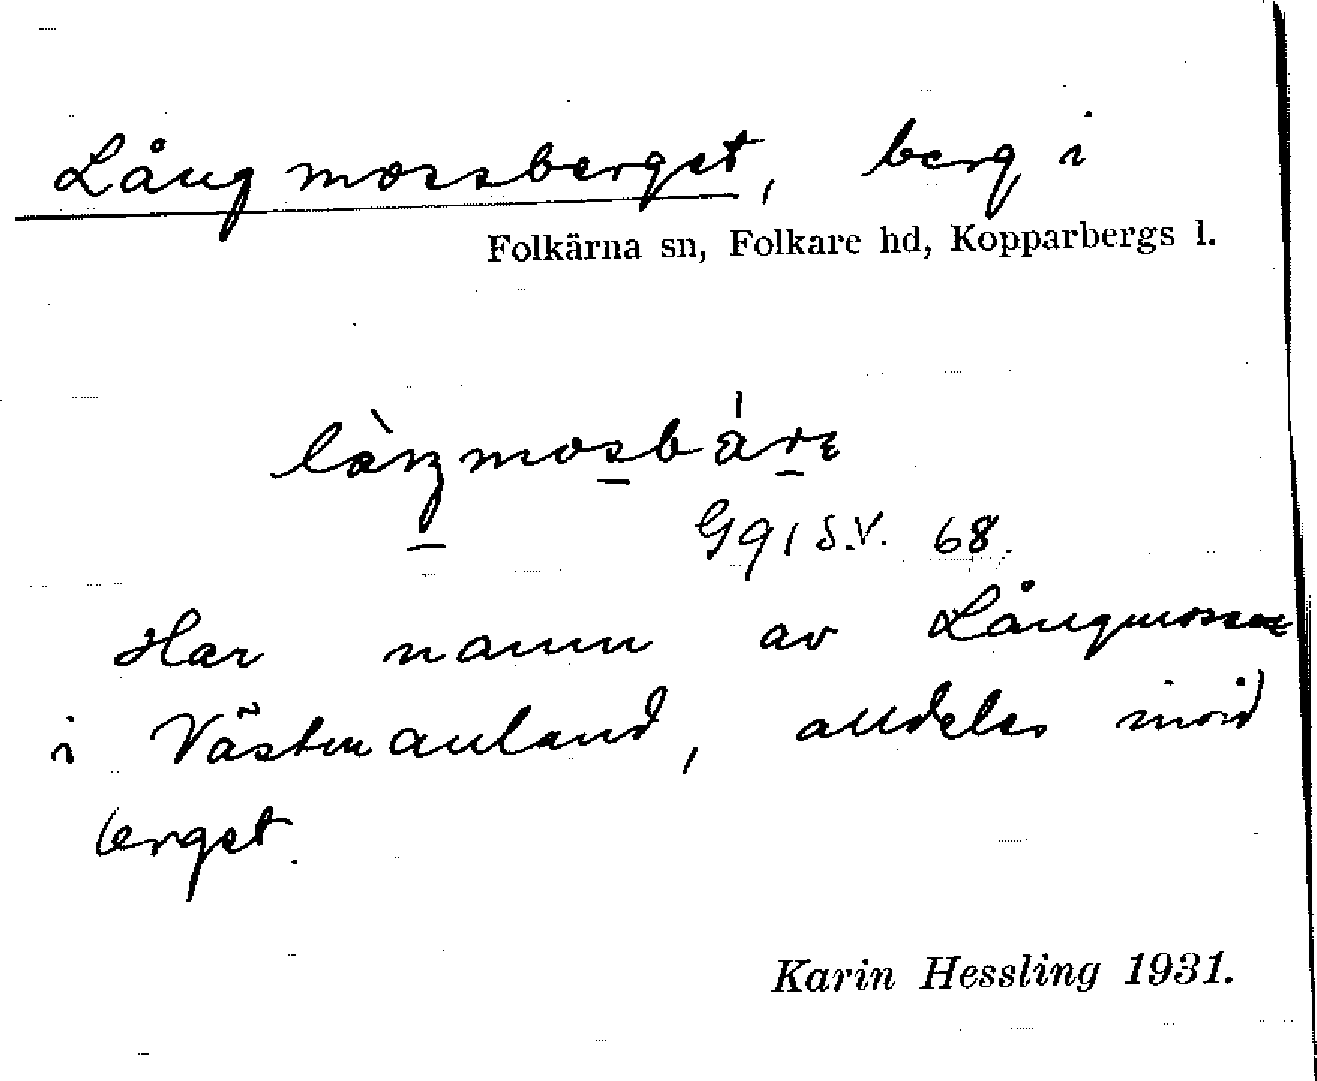 Långmossberget, berg i
Folkärna sn, Folkare hd, Kopparbergs l.
Gg i S.V. 68.
Har namn av Långmossen
i Västmanland, alldeles invid
berget.
Karin Hessling 1931.